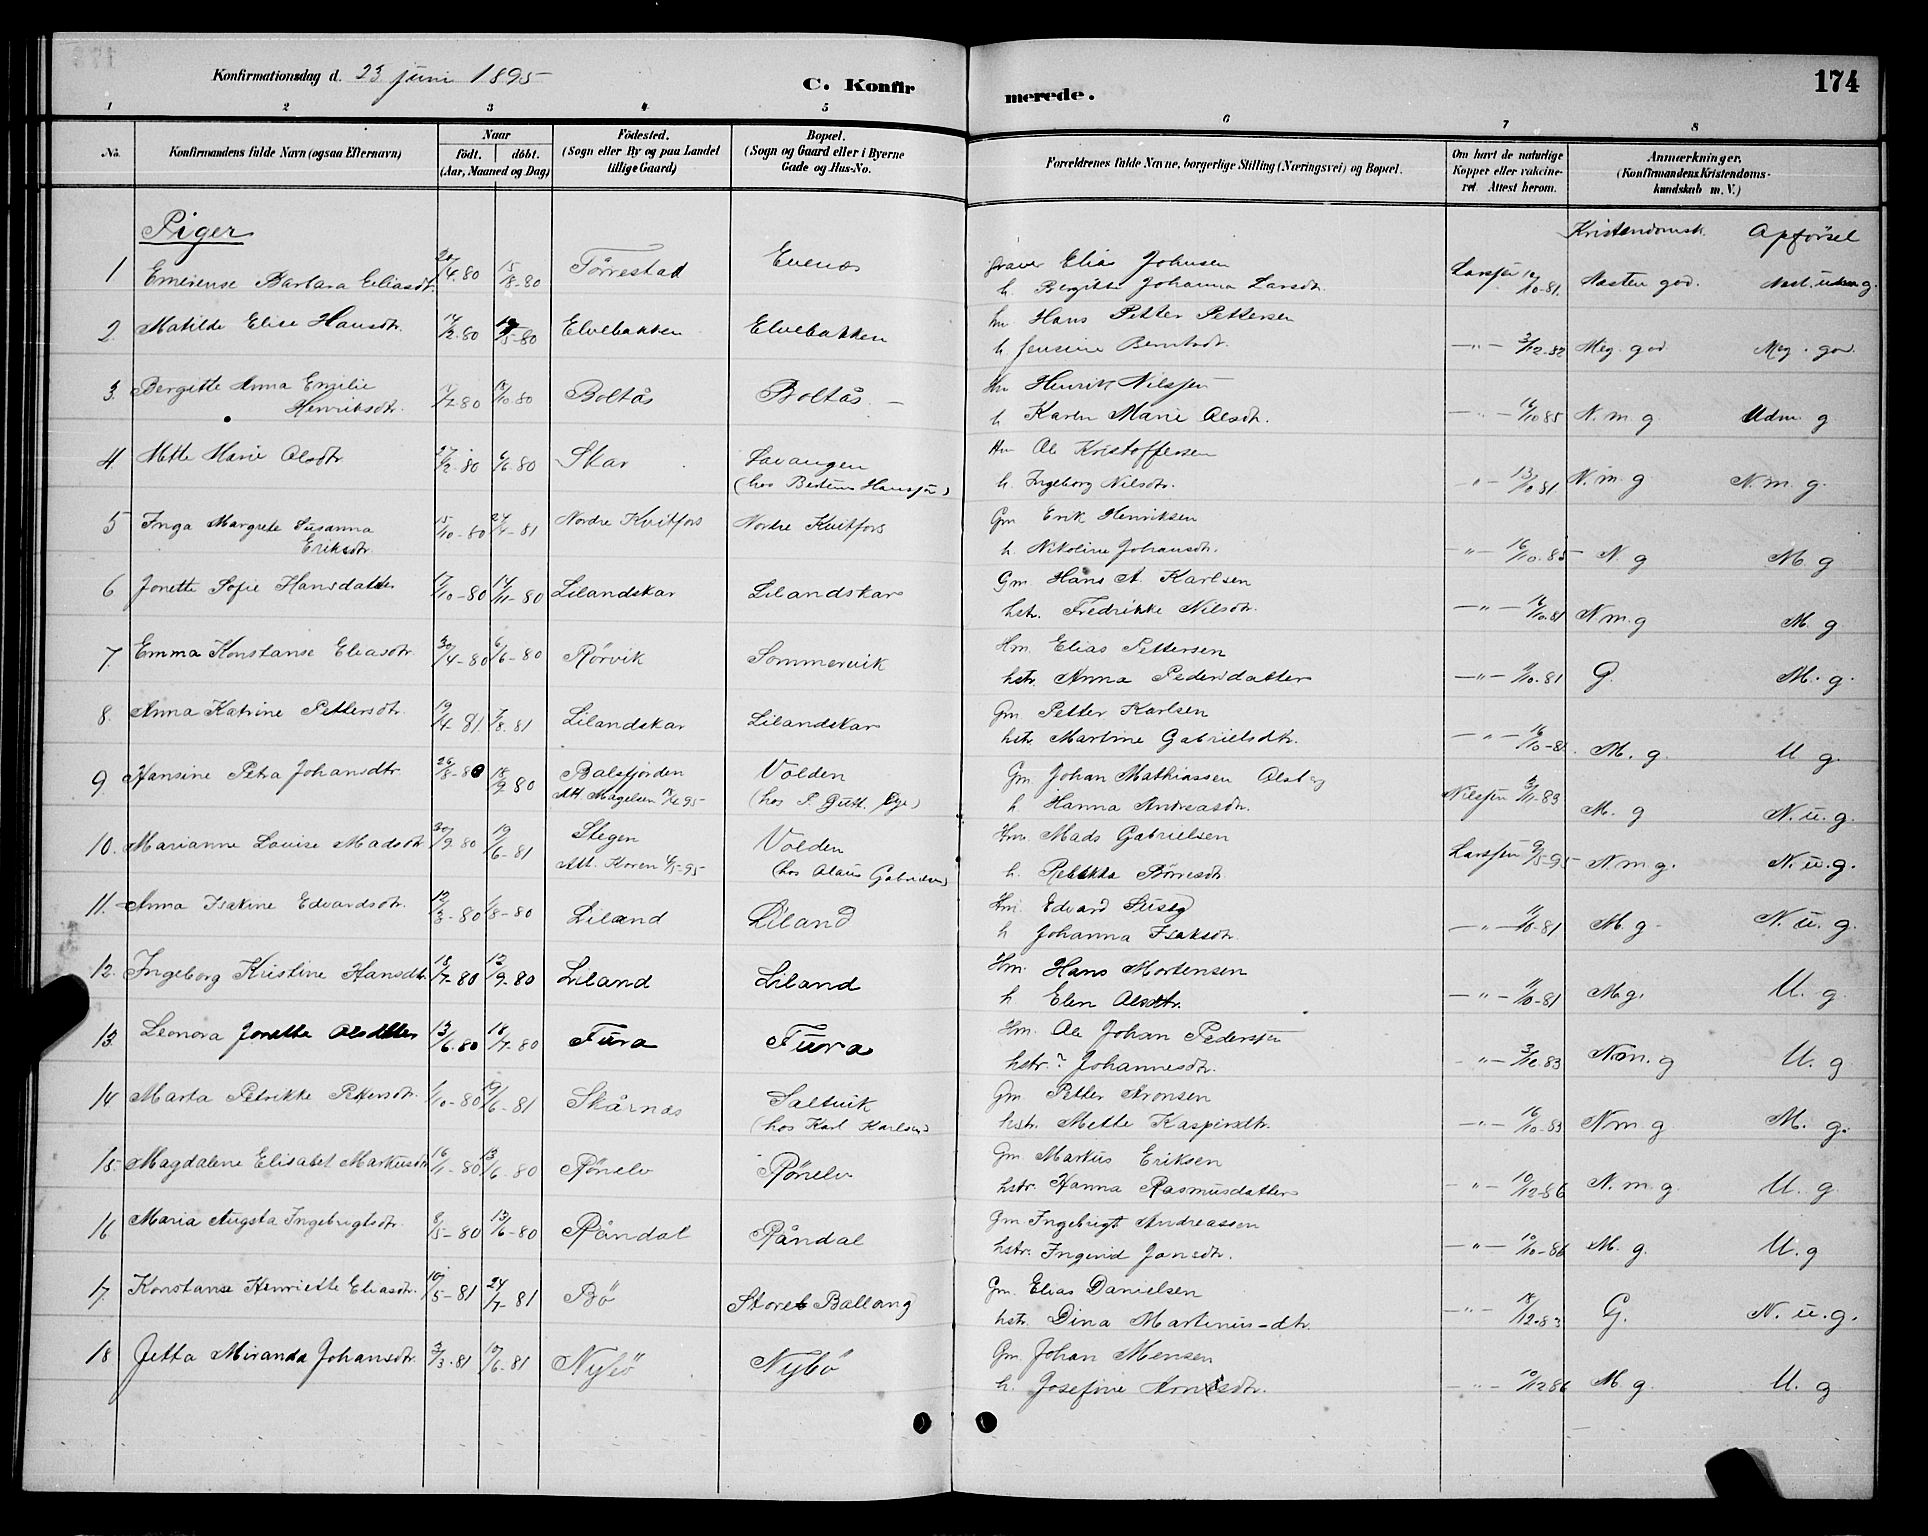 174
Konfirmationsdag d. 23 juni 1895
C. Konfirmerede.
1 2 3 4 5 6 7 8
No. Konfirmandens fulde Navn (ogsaa Efternavn) Naar födt. döbt. (Aar, Maaned og Dag) Födested. (Sogn eller By og paa Landet tillige Gaard) Bopæl. (Sogn og Gaard eller i Byerne Gade og Hus-No. Forældrenes fulde Navne, borgerlige Stilling (Næringsvei) og Bopæl. Om havt de naturlige Kopper eller vakcineret. Attest herom. Anmærkninger. (Konfirmandens Kristendomskundskab m. V.)
Piger Kristendomsk. Opførsel
1 Barbara Eliasdtr. 20/4.80 15/8-80 Tørrestad Evenes Elias Johnsen
h. Bergitte Johanna Larsdr. Larssen 10/10-81. Næsten god. Næst. udm g.
2. Matilde Elise Hansdtr. 12/2.80 /5-80 Elvebakken Elvebakken hm Hans Petter Pettersen
h Jensine Berntsdr. —"— 3/12-82 Meg. god Meg. god.
3. Bergitte Anna Emilie
Henriksdtr. /2-80 /10 80 Boltås Boltås — Hm Henrik Nilssen
h Karen Marie Olsdtr. —"— 16/10 85 N. m g Udm. g
4 Mette Marie Olsdtr 27/2-80 6/6 80 Skar Lavangen
(hos Hanssen) Hm Ol Kristoffersen
h. Ingeborg Nilsdtr. —"— 13/10 81 N. m. g N. m. g.
5 Inga Margrete Susanna
Eriksdtr 15/10-80 24/4-81 Nordre Kvitfors Nordre Kvitfors Gm Erik Henriksen
h. Nikoline Johansdtr. —"— 16/10.85 N. g M. g
6 Jonette Sofie Hansdatter 17/10-80 14/11-80 Lilandskar Lilandskar Gm Hans A. Karlsen
hstr. Fredrikke Nilsdtr. —"— 16/10.81 N m. g M. g
7 Emma Konstanse Eliasdtr 30/4-80 6/6-80 Rörvik Sommervik Hm. Elias Pettersen
hstr. Anna Pedersdatter —"— 11/10.81 G. M. g.
8. Anna Katrine Pettersdtr. 19/4 81 7/8.81 Lilandskar Lilandskar Gm Petter Karlsen
hstr. Martine Gabrielsdtr. —"— 16/10-8 M. g. U g.
9. Hansine Petra Johansdtr 26/8-80 18/9 80 Balsfjorden
Att. Magelsen 95- Volden
(hos P. Gutt. ) Gm Johan Mathiassen
h Hanna Andreasdtr. Nilssen 3/11-83 M. g N. u. g.
10. Marianne Louise Madsdtr 30/9 80 19/6-81 Stegen
Att. Koren 4/5-95 Volden
(hos Olaus Gabrielsen) Hm Mads Gabrielsen
h. Rebekka Larssen 9/5-95 N. m. g. N. u. g.
11. Anna Isakine Edvardsdtr. 12/3-80 1/8-80 Liland Liland Hm. Edvard
h Johanna Isaksdtr. —"— 11/10-81 M. g. N. u. g.
12. Ingeborg Kristine Hansdtr 13/7-80 12/9-80 Liland Liland Hm. Hans Mortensen
h Elen Olsdtr. —"— 11/10-81 M. g. U. g.
13. Leonora Jonette Olsdatter 13/6.80 18/7-80 Fura Fura Hm. Ole Johan Pederssen
hstr. ? Johannesdtr. —"— 3/12.83 N. m. g U. g
14 Marta Petrikke Pettersdtr. 1/10-80 19/6-81 Skårnes Saltvik
(hos Karl Karlsen) Gm Petter Aronsen
hstr. Mette Kaspersdtr. —"— 16/10-83 N m g M. g.
15. Magdalene Elisabet Markusdtr 16/1-80 13/6-80 Rönelv Rönelv Gm. Markus Eriksen
hstr. Hanna Rasmusdatter —"— 10/12-86 N. m. g. U. g
16. Maria Augsta Ingebrigtsdtr. 8/5-80 13/6-80 Råndal Råndal Gm Ingebrigt Andreassen
hstr. Ingerid Jonsdtr. —"— 10/10-86 M. g. U. g
17. Konstanse Henriette Eliasdtr. 10/5-81 24/7-81 Bö Storel Ballang Gm. Elias Danielsen
hstr. Dina Martinus-dtr. —"— 18/12-83 G. N. u. g.
18 Jetta Miranda Johansdtr. 3/3.81 19/6.81 Nybö Nybö Gm. Johan Mensen
h. Josefine —"— 10/12 86 M. g. U. g